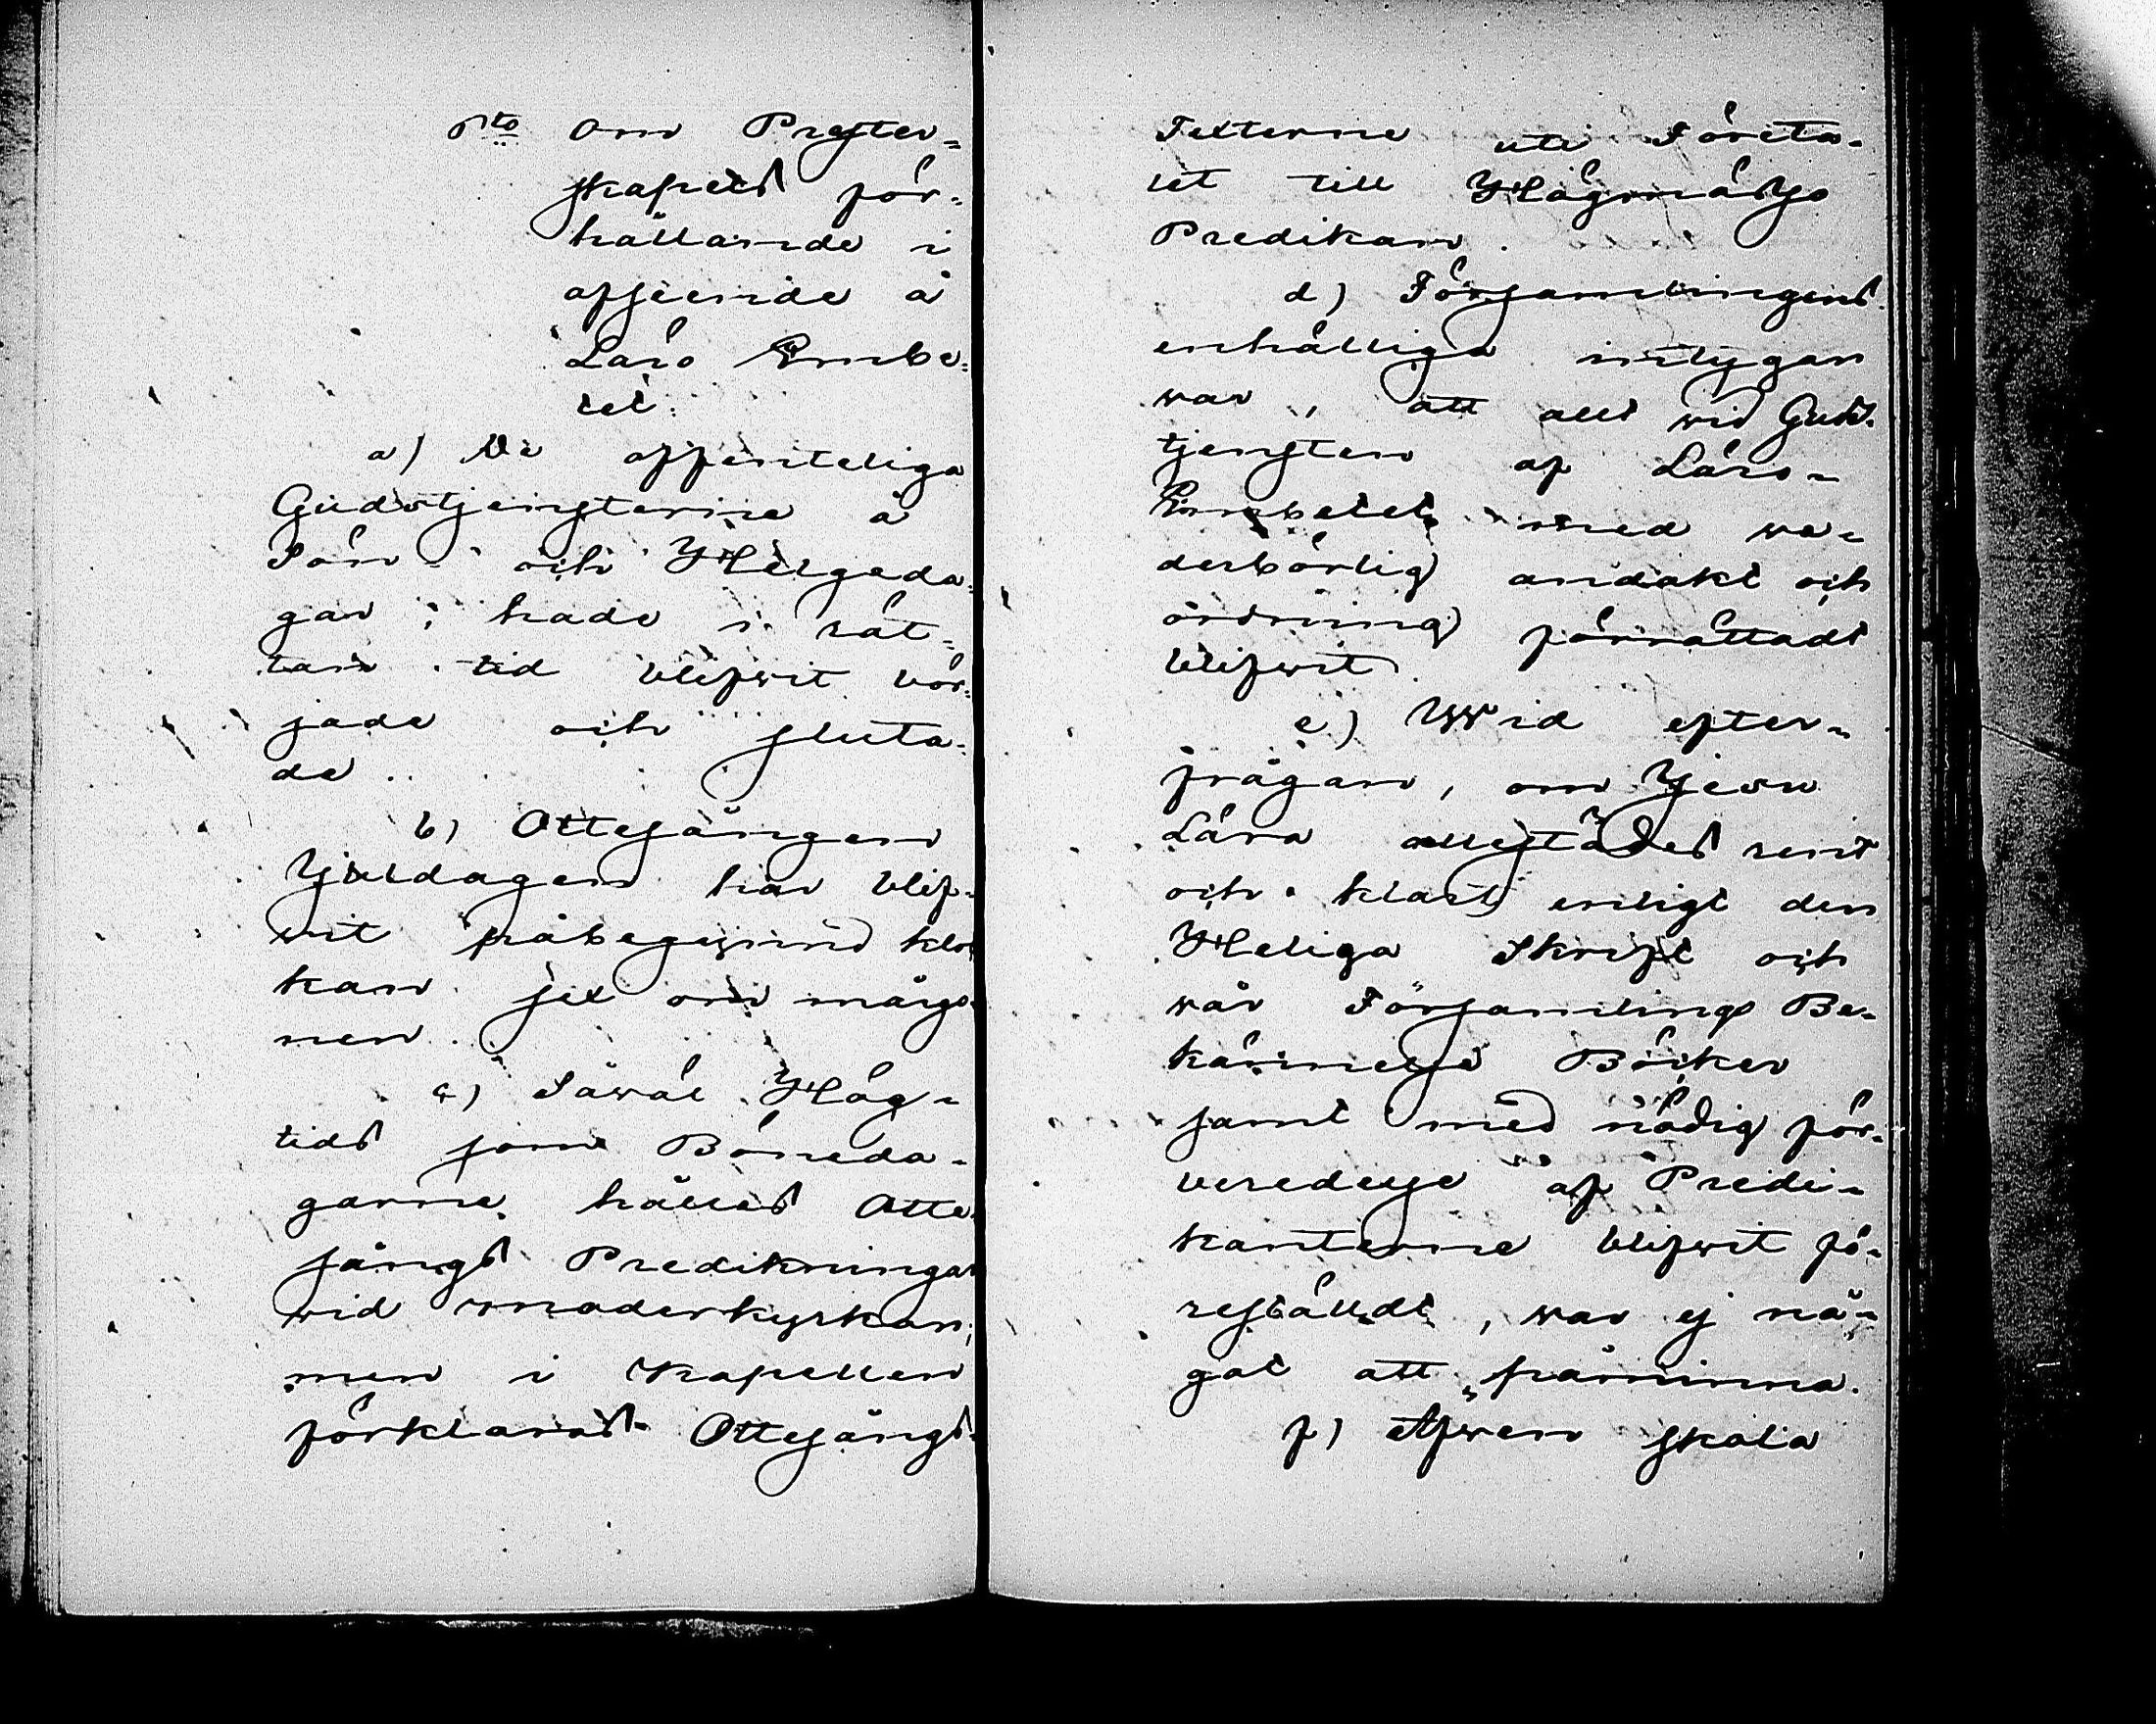 1to Om Prester=
skapets för=
hållande i
afseende å
Läro Embe=
tet.
a) De offenteliga
Gudstjensterne å
Sön- och Helgeda=
gar, hade i rät=
tan tid blifwit bör=
jade och sluta=
de.
b) Ottesången
Juldagen har blif=
wit påbegynnd kloc
kan sex om mårgo=
nen.
c) Såwäl Hög=
tids som Böneda=
garne hålles Otte=
sångs Predikningar
wid moderkyrkan;
men i Kapellen
förklaras Ottesångs=
Texterne uti Företa=
let till Högmässo
Predikan.
d) Församlingens
enhälliga intygan
war, att allt wid Guds=
tjensten af Läro=
Embetet med we=
derbörlig andakt och
ordning förrättadt
blifwit.
e) Wid efter=
frågan, om Jesu
Lära allestädes rent
och klart enligt den
Heliga Skrift och
wår Församlings Be=
kännelse Böcker
samt med nödig för=
beredelse af Predi=
kanterne blifwit fö=
restäldt, war ej nå=
got att påminna.
f) Afwen skola